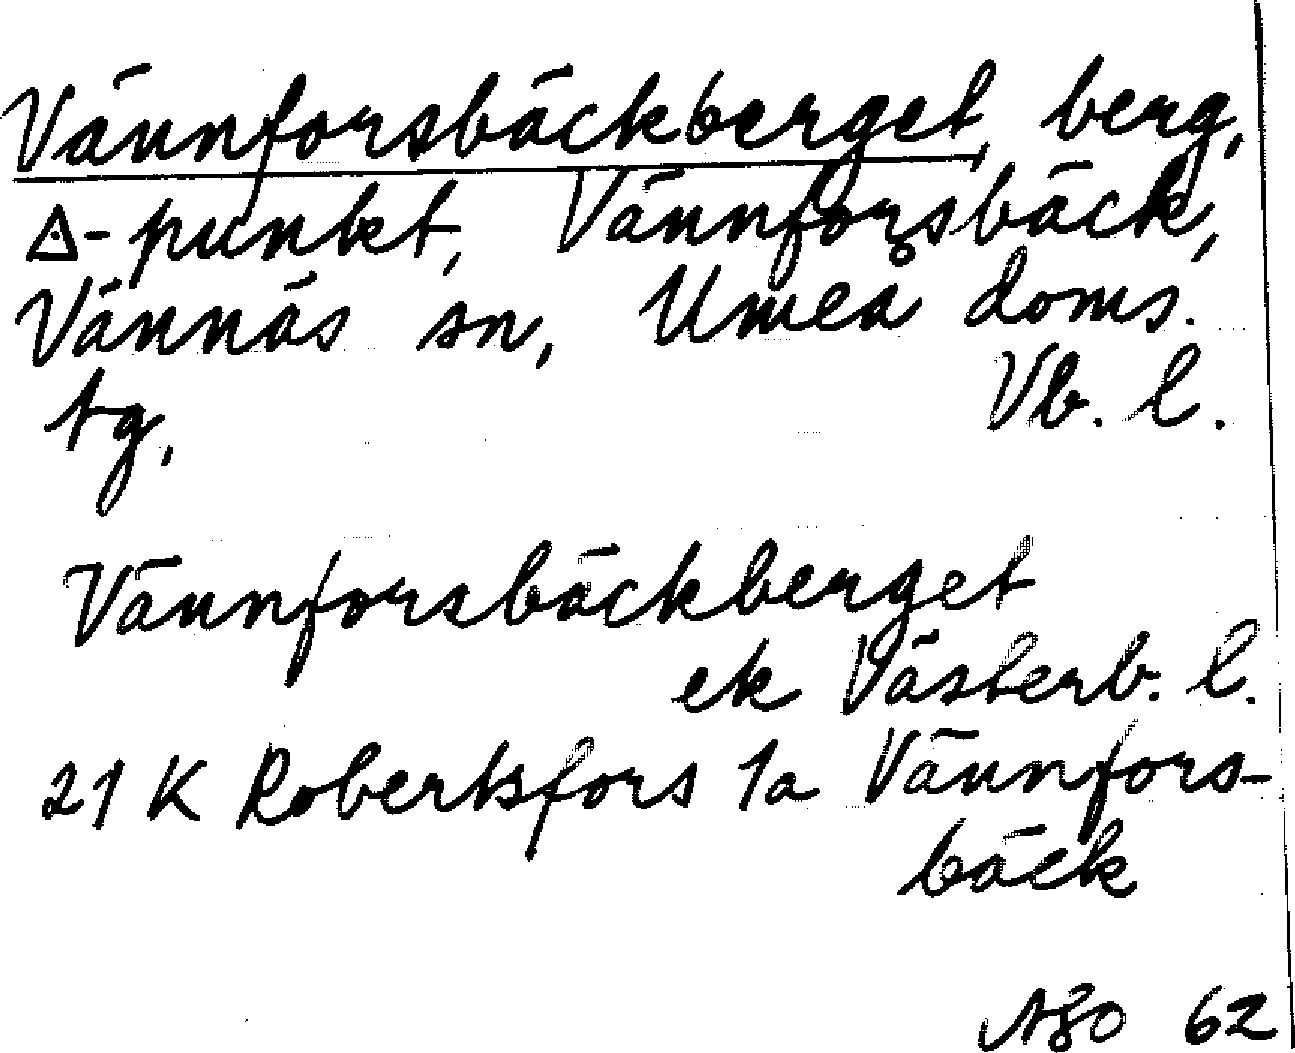 Vännforsbäckberget, berg,
△-punkt, Vännforsbäck,
Vännäs sn, Umeå doms.
tg, Vb. l.
Vännforsbäckberget
ek Västerb. l.
21 K Robertsfors 1a Vännfors-
bäck
62